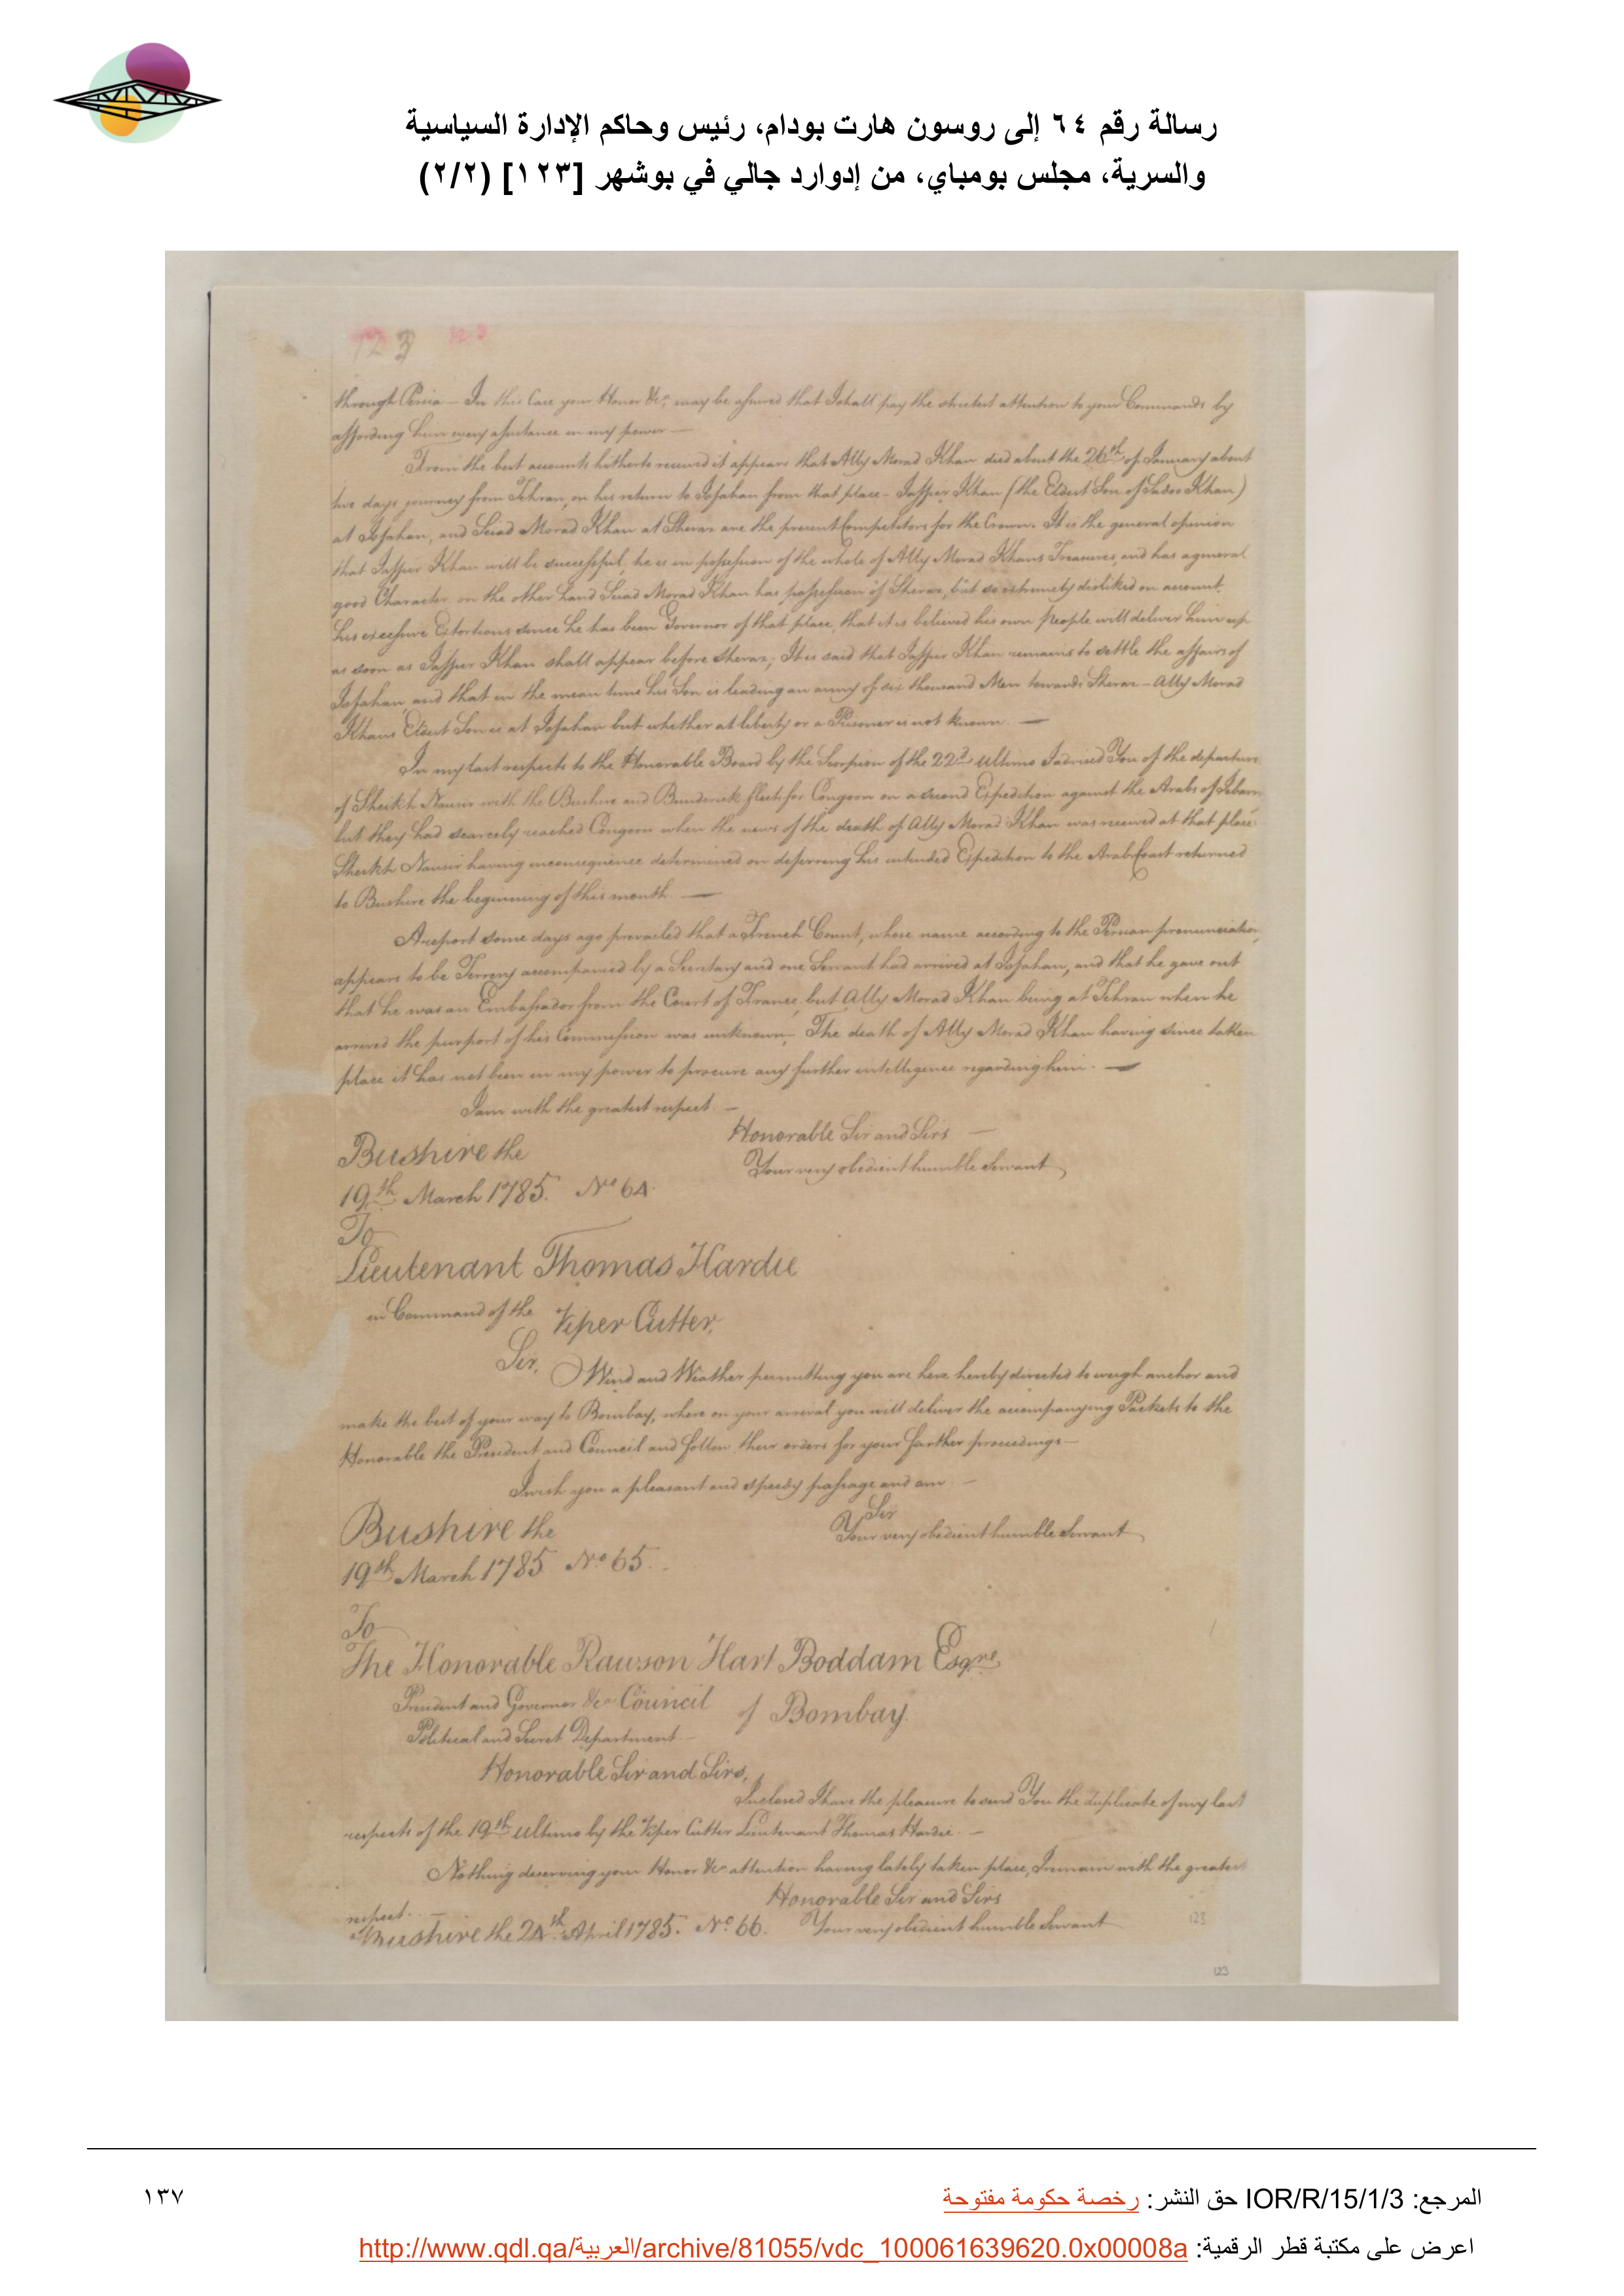 رسالة رقم ٦٤ إلى روسون هارت بودام، رئيس وحاكم الإدارة السياسية
والسرية، مجلس بومباي، من إدوارد جالي في بوشهر [١٢٣] (٢/٢)
123 123
through Persia – In this Case your Honor &ca. may be assured that I shall pay the strictest attention to your Commands by
affording him every assistance in my power –
From the best accounts hitherto received it appears that Ally Morad Khan died about the 26th of January about
two days journey from Tehran, on his return to Isfahan from that place – Jaffier Khan (the Eldest Son of Sadoo Khan)
at Isfahan, and Seiad Morad Khan at Sheraz are the present Competitors for the Crown. It is the general opinion
that Jaffier Khan will be successful, he is in possession of the whole of Ally Morad Khans Treasures, and has a general
good Character on the other hand Seiad Morad Khan has possession of Sheraz, but so extremely disliked on account
his excessive Extortions since he has been Governor of that place, that it is believed his own People will deliver him up
as soon as Jaffier Khan shall appear before Sheraz; It is said that Jaffier Khan remains to settle the affairs of
Isfahan, and that in the mean time his Son is leading an army of six thousand Men towards Sheraz – Ally Morad
Khans Eldest Son is at Isfahan but whether at liberty or a Prisoner is not known. –
In my last respects to the Honorable Board by the Scorpion of the 22d ultimo I advised You of the departure
of Sheikh Nausir with the Bushire and Bunderick fleets for Congoon on a second Expedition against the Arabs of
but they had scarcely reached Congoon when the news of the death of Ally Morad Khan was received at that place
Sheikh Nausir having inconsequence determined on deferring his intended Expedition to the Arab Coast returned
to Bushire the beginning of this month. –
A report some days ago prevailed that a French Count, whose name according to the Persian pronunciation,
appears to be accompanied by a Secretary and one Servant had arrived at Isfahan, and that he gave out
that he was an Embassador from the Court of France, but Ally Morad Khan being at Tehran when he
arrived the purport of his Commission was unknown. The death of Ally Morad Khan having since taken
place it has not been in my power to procure any further intelligence regarding him. –
I am with the greatest respect –
Honorable Sir and Sirs –
Bushire the
Your very obedient humble Servant
19th March 1785. No 64.
To
Lieutenant Thomas Hardie
in Command of the Viper Cutter,
Sir,
Wind and Weather permitting you are here hereby directed to weigh anchor and
make the best of your way to Bombay, where on your arrival you will deliver the accompanying Packets to the
Honorable the President and Council and follow their orders for your farther proceedings –
I wish you a pleasant and speedy passage and am –
Sir
Bushire the
Your very obedient humble Servant
19th March 1785 No 65.
To
The Honorable Rawson Hart Boddam Esqre
President and Governor &ca Council of Bombay.
Political and Secret Department –
Honorable Sir and Sirs,
Inclosed I have the pleasure to send You the duplicate of my last
respects of the 19th ultimo by the Viper Cutter Lieutenant Thomas Hardie. –
Nothing deserving your Honor &ca attention having lately taken place, I remain with the greatest
respect. –
Honorable Sir and Sirs
Bushire the 24th April 1785. No 66. Your very obedient humble Servant
123
123
المرجع: IOR/R/15/1/3 حق النشر: رخصة حكومة مفتوحة
١٣٧
اعرض على مكتبة قطر الرقمية: http://www.qdl.qa/العربية/archive/81055/vdc_100061639620.0x00008a